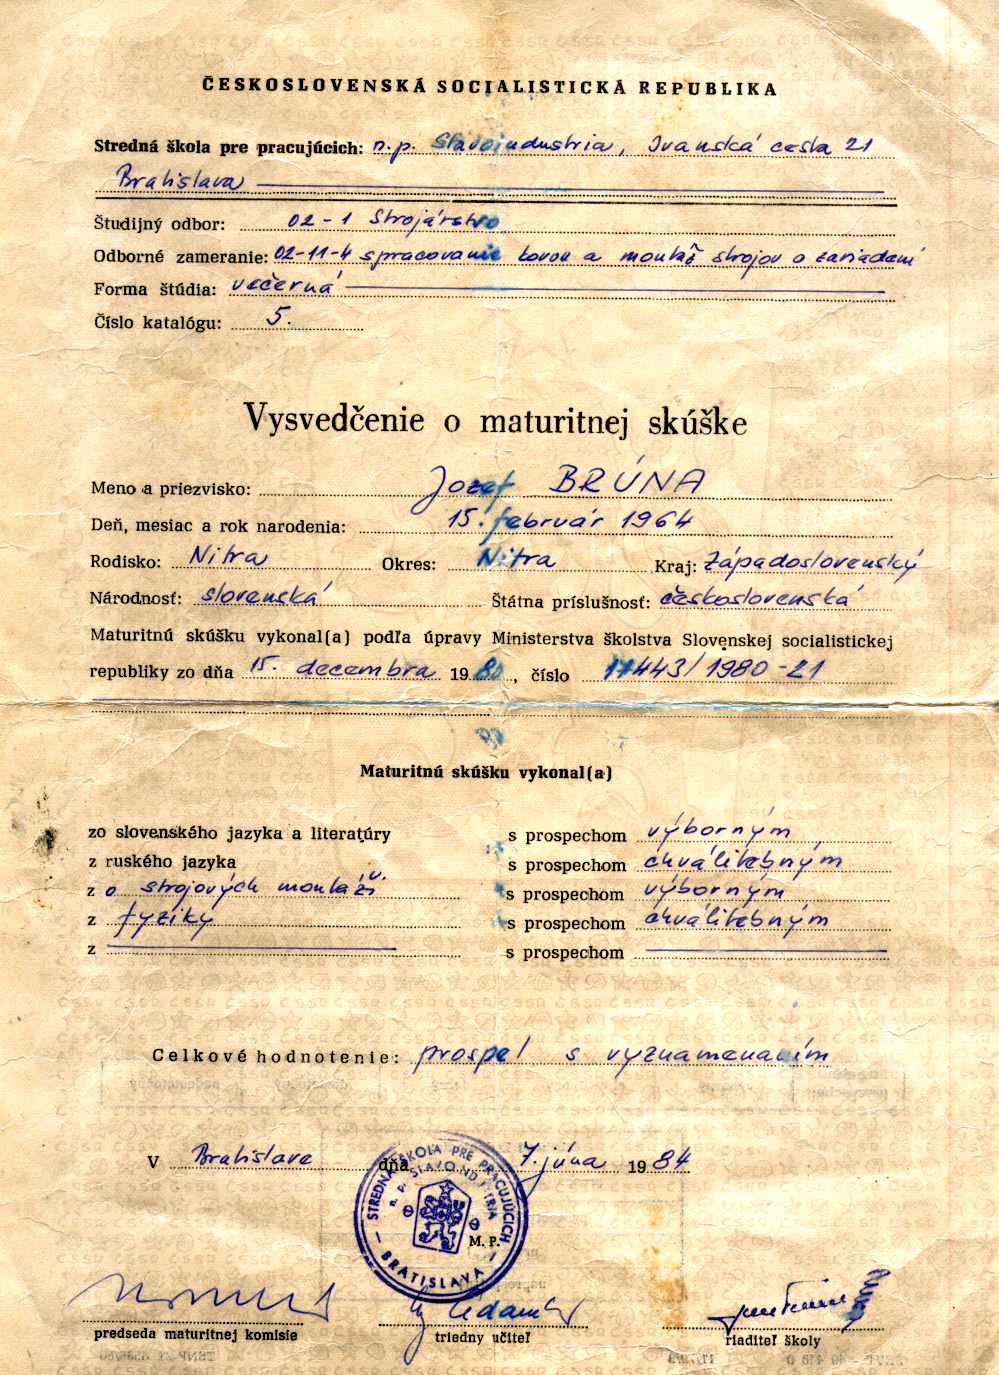 ČESKOSLOVENSKÁ SOCIALISTICKÁ REPUBLIKA
Stredná škola pre pracujúcich: n.p. Stavoindustria, Ivanská cesta 21
Bratislava
Študijný odbor: 02-1 Strojárstvo
Odborné zameranie: 02-11-4 spracovanie kovov a montáž strojov a zariadení
Forma štúdia: večerná
Číslo katalógu: 5.
Vysvedčenie o maturitnej skúške
Meno a priezvisko: Jozef BRÚNA
Deň, mesiac a rok narodenia: 15. február 1964
Rodisko: Nitra Okres: Nitra Kraj: Západoslovenský
Národnosť: slovenská Štátna príslušnosť: československá
Maturitnú skúšku vykonal(a) podľa úpravy Ministerstva školstva Slovenskej socialistickej
republiky zo dňa 15. decembra 1980, číslo 11443/1980-21
Maturitnú skúšku vykonal(a)
zo slovenského jazyka a literatúry s prospechom výborným
z ruského jazyka s prospechom chválitebným
z o strojových montáží s prospechom výborným
z fyziky s prospechom chválitebným
z s prospechom
Celkové hodnotenie: prospel s vyznamenaním
V Bratislave dňa 7. júna 1984
STREDNÁ ŠKOLA PRE PRACUJÚCICH
n. p. STAVOINDUSTRIA
– BRATISLAVA –
M. P.
predseda maturitnej komisie triedny učiteľ riaditeľ školy